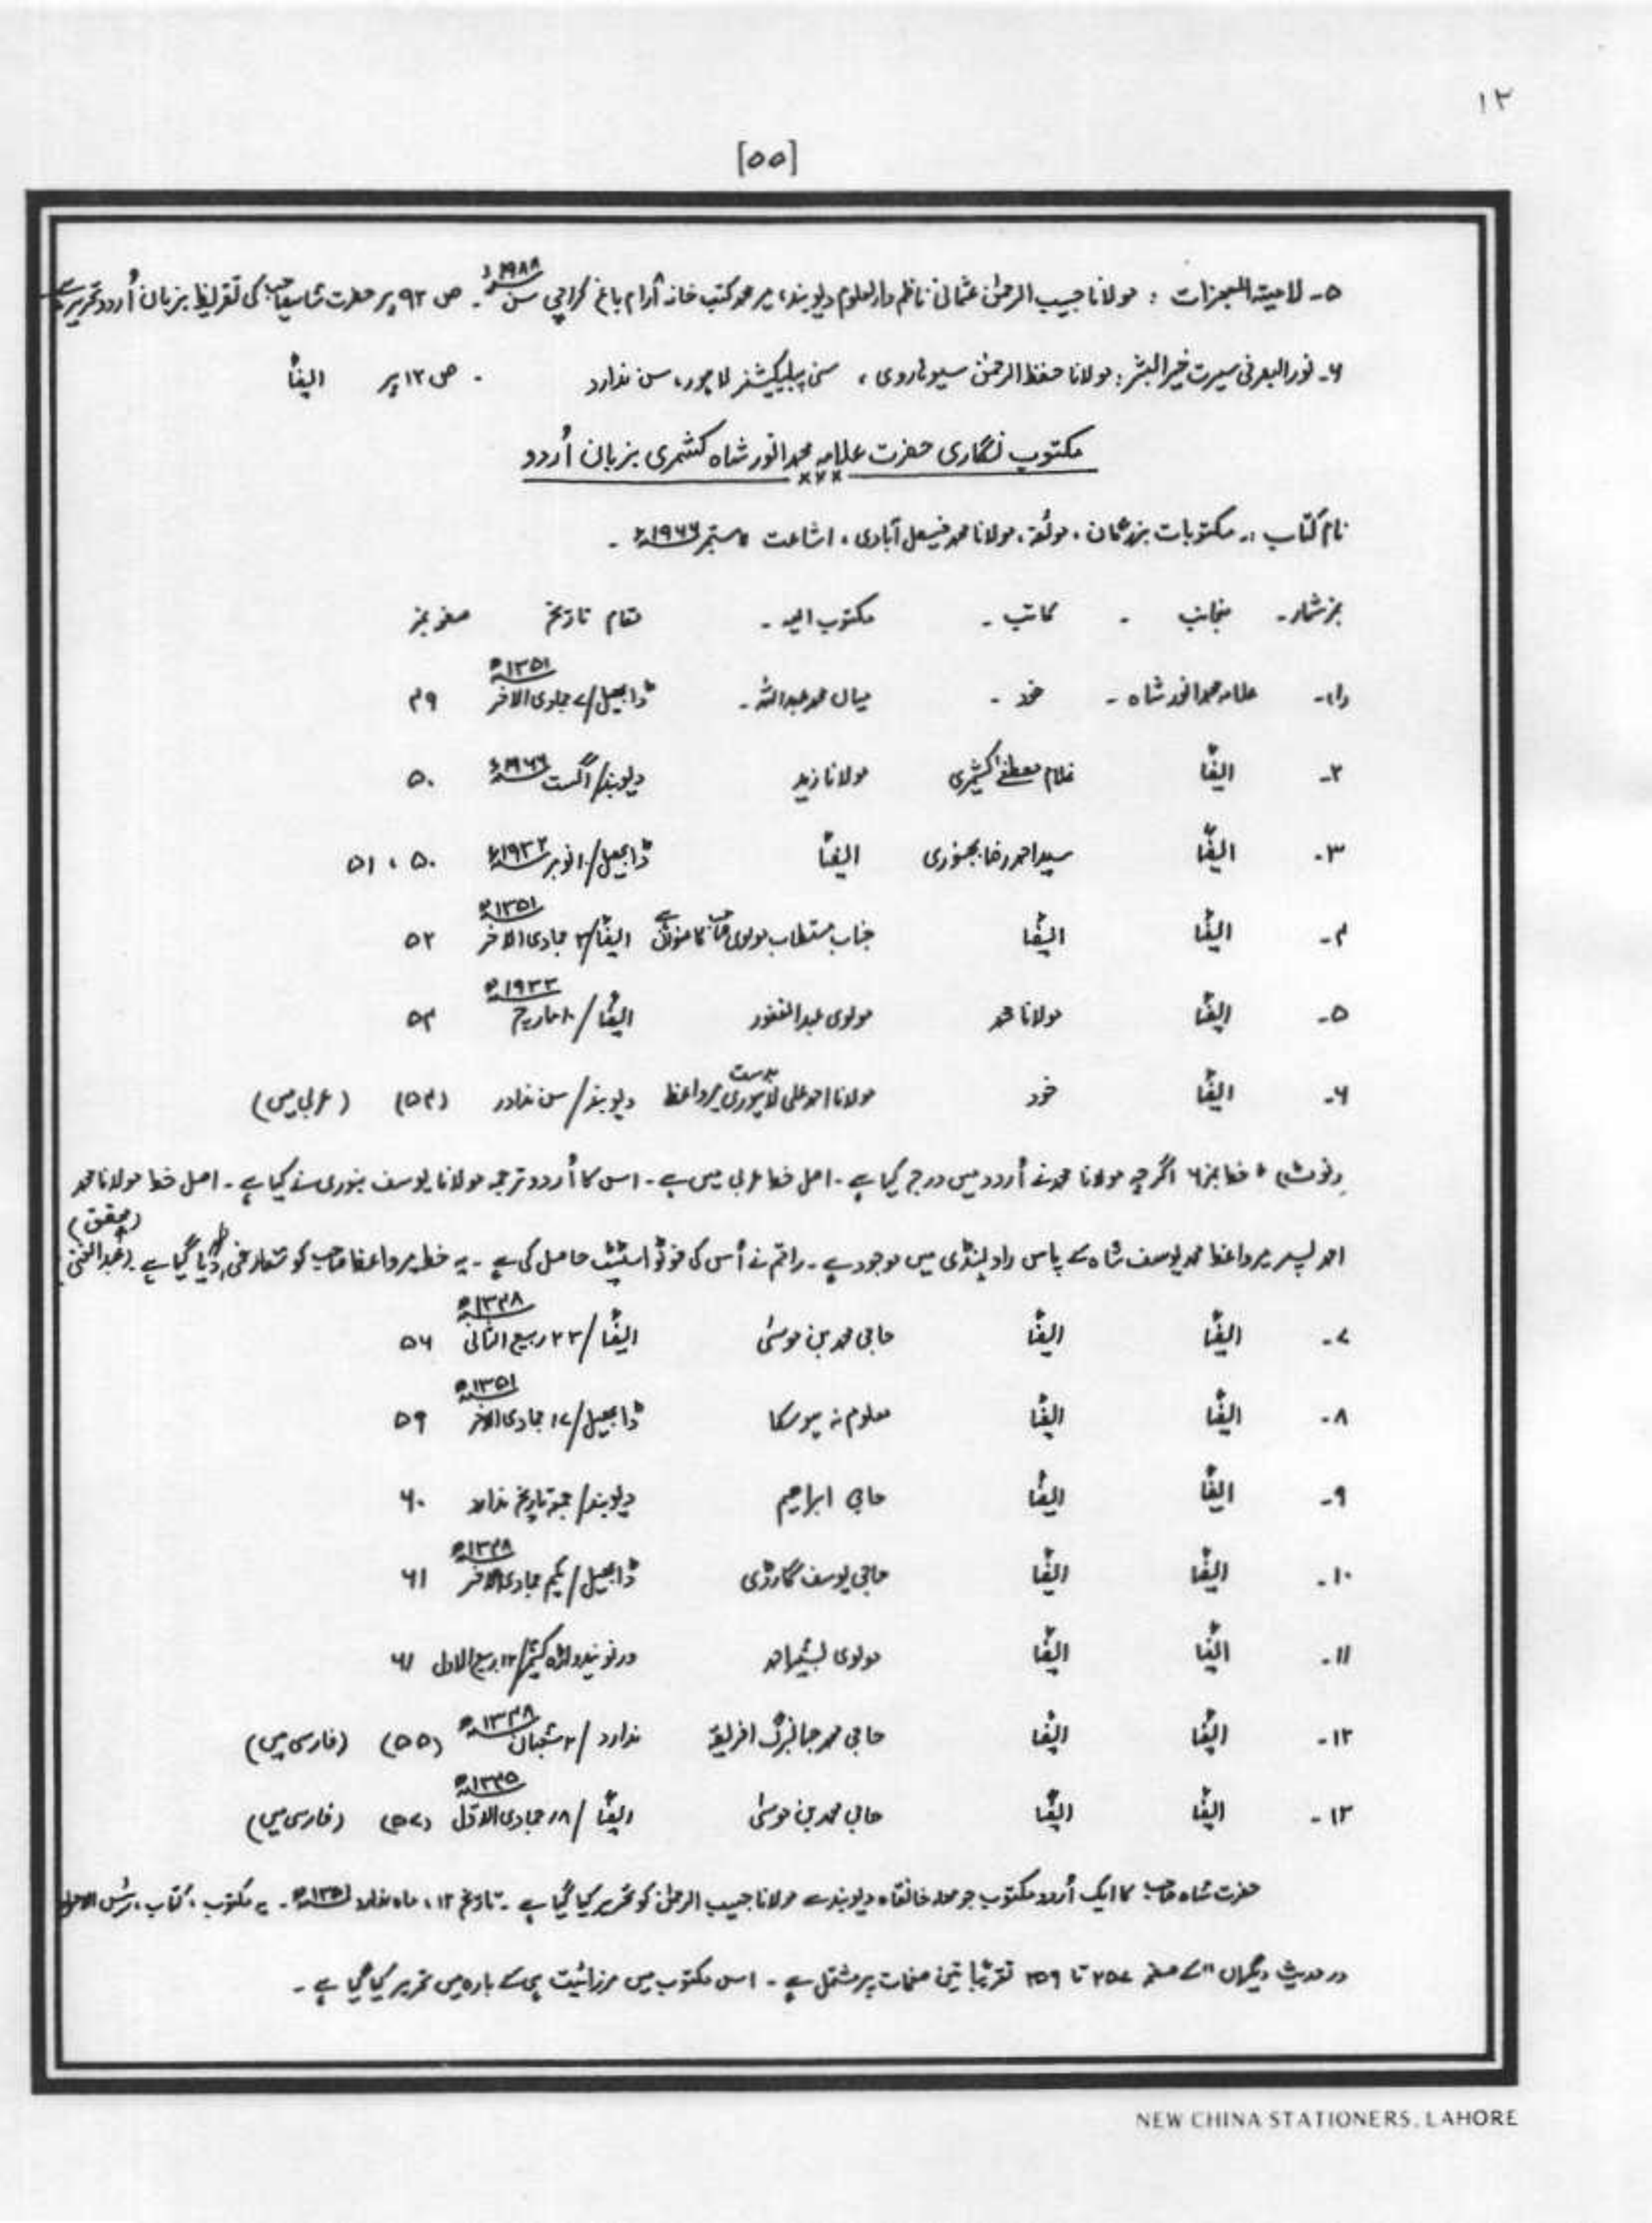 ۱۲
[۵۵]
۵۔ لامیتہ المعجزات : مولانا حبیب الرحمٰن عثمانی ناظم دارالعلوم دیوبند، میر محمد کتب خانہ آرام باغ کراچی سن ۱۹۸۸ء۔ ص ۹۲ پر حضرت شاہ صاحب کی تقریظ بزبان اُردو تحریر ہے
۶۔ نور البصر فی سیرت خیر البشر : مولانا حفظ الرحمٰن سیوہاروی ، سنی پبلیکیشنز لاہور، سن ندارد ۔ ص ۱۲ پر ایضاً
مکتوب نگاری حضرت علامہ محمد انور شاہ کشمیری بزبان اُردو
×××
نام کتاب :۔ مکتوبات بزرگان ، مولفہ، مولانا محمد فیصل آبادی ، اشاعت ستمبر ۱۹۶۶ء ۔
نمبر شمار۔ منجانب ۔ کاتب ۔ مکتوب الیہ ۔ مقام تاریخ صفحہ نمبر
(۱)۔ علامہ محمد انور شاہ ۔ خود ۔ میاں محمد عبداللہ ۔ ڈابھیل / ۷ جمادی الاخر ۱۳۵۱ھ ۴۹
۲۔ ایضاً غلام مصطفےٰ کشمیری مولانا زید دیوبند / اگست ۱۹۶۶ء ۵۰
۳۔ ایضاً سید احمد رضا بجنوری ایضاً ڈابھیل / ۱۰ نومبر ۱۹۳۲ء ۵۰ ، ۵۱
۴۔ ایضاً ایضاً جناب مستطاب مولوی صاحب ایضاً / ۳ جمادی الاخر ۱۳۵۱ھ ۵۲
۵۔ ایضاً مولانا محمد مولوی عبد الغفور ایضاً / ۱۰ مارچ ۱۹۳۳ ۵۳
۶۔ ایضاً خود مولانا احمد علی لاہوری بدست میر واعظ دیوبند / سن ندارد (۵۴) (عربی میں)
(نوٹ) خط نمبر ۶ اگرچہ مولانا محمد نے اُردو میں درج کیا ہے ۔ اصل خط عربی میں ہے ۔ اس کا اُردو ترجمہ مولانا یوسف بنوری نے کیا ہے ۔ اصل خط مولانا محمد
احمد پسر میر واعظ محمد یوسف شاہ کے پاس راولپنڈی میں موجود ہے ۔ راقم نے اُس کی فوٹو اسٹیٹ حاصل کی ہے ۔ یہ خط میر واعظ صاحب کو دیا گیا ہے (محقق)
۷۔ ایضاً ایضاً حاجی محمد بن موسیٰ ایضاً / ۲۳ ربیع الثانی ۱۳۴۸ھ ۵۶
۸۔ ایضاً ایضاً معلوم نہ ہو سکا ڈابھیل / ۱۷ جمادی الاخر ۱۳۵۱ھ ۵۹
۹۔ ایضاً ایضاً حاجی ابراہیم دیوبند / جمعہ تاریخ ندارد ۶۰
۱۰۔ ایضاً ایضاً حاجی یوسف گارڈی ڈابھیل / یکم جمادی الاخر ۱۳۴۸ھ ۶۱
۱۱۔ ایضاً ایضاً مولوی بشیر احمد کشمیر / ۱۲ ربیع الاول ۶۱
۱۲۔ ایضاً ایضاً حاجی محمد افریقہ ندارد / ۲ شعبان ۱۳۴۸ھ (۵۵) (فارسی میں)
۱۳۔ ایضاً ایضاً حاجی محمد بن موسیٰ ایضاً / ۱۸ جمادی الاوّل ۱۳۴۵ھ (۵۷) (فارسی میں)
حضرت شاہ صاحب کا ایک اُردو مکتوب جو محلہ خانقاہ دیوبند سے مولانا حبیب الرحمٰن کو تحریر کیا گیا ہے ۔ تاریخ ۱۲ ، ماہ ندارد ۔ یہ مکتوب ، کتاب،
در حدیث دیگراں " کے صفحہ ۲۵۷ تا ۲۵۹ تقریباً تین صفحات پر مشتمل ہے ۔ اس مکتوب میں مرزائیت ہی کے بارہ میں تحریر کیا گیا ہے ۔
NEW CHINA STATIONERS, LAHORE